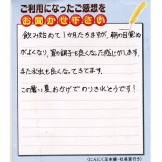 ご利用になったご感想を
お聞かせ下さい
飲み始めて1ヶ月たちますが、朝の目覚め
がよくなり、胃の調子も良くなった感じがします。
また水虫も良くなってきてます。
この暑い夏、おかげでのりきれそうです!
(にんにく玉本舗・社長直行き)